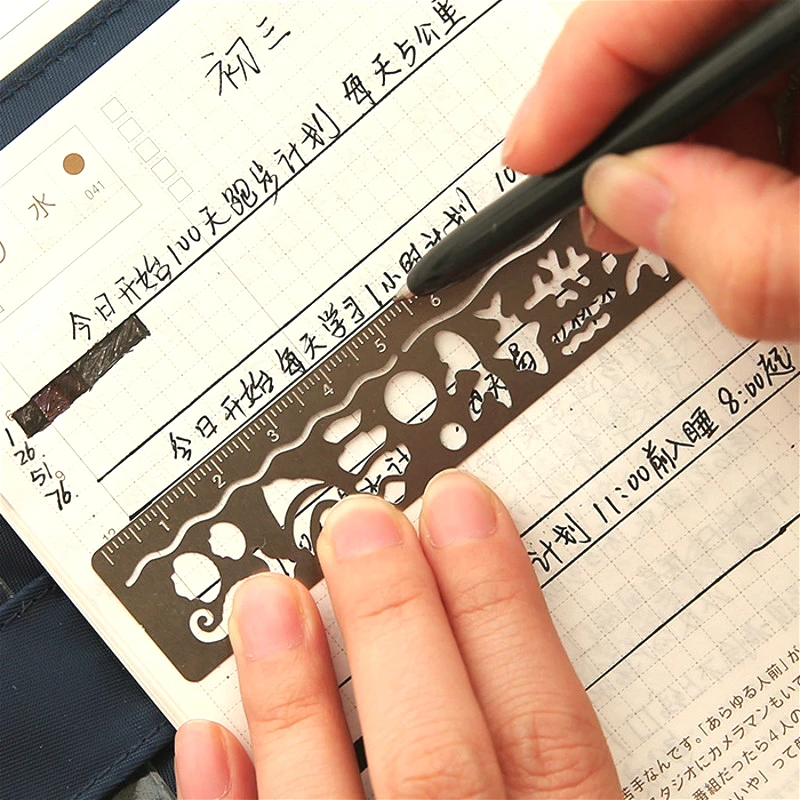 初三
水
041
今日开始100天跑步计划 每天5公里
今日开始每天学习1小时计划 10
1 2 3 4 5 6
计划 11:00前入睡 8:00起
1
26.
51.
76.
苦手なんです。「あらゆる人前」が
タジオにカメラマンもいて
番組だったら4人の
いや」って